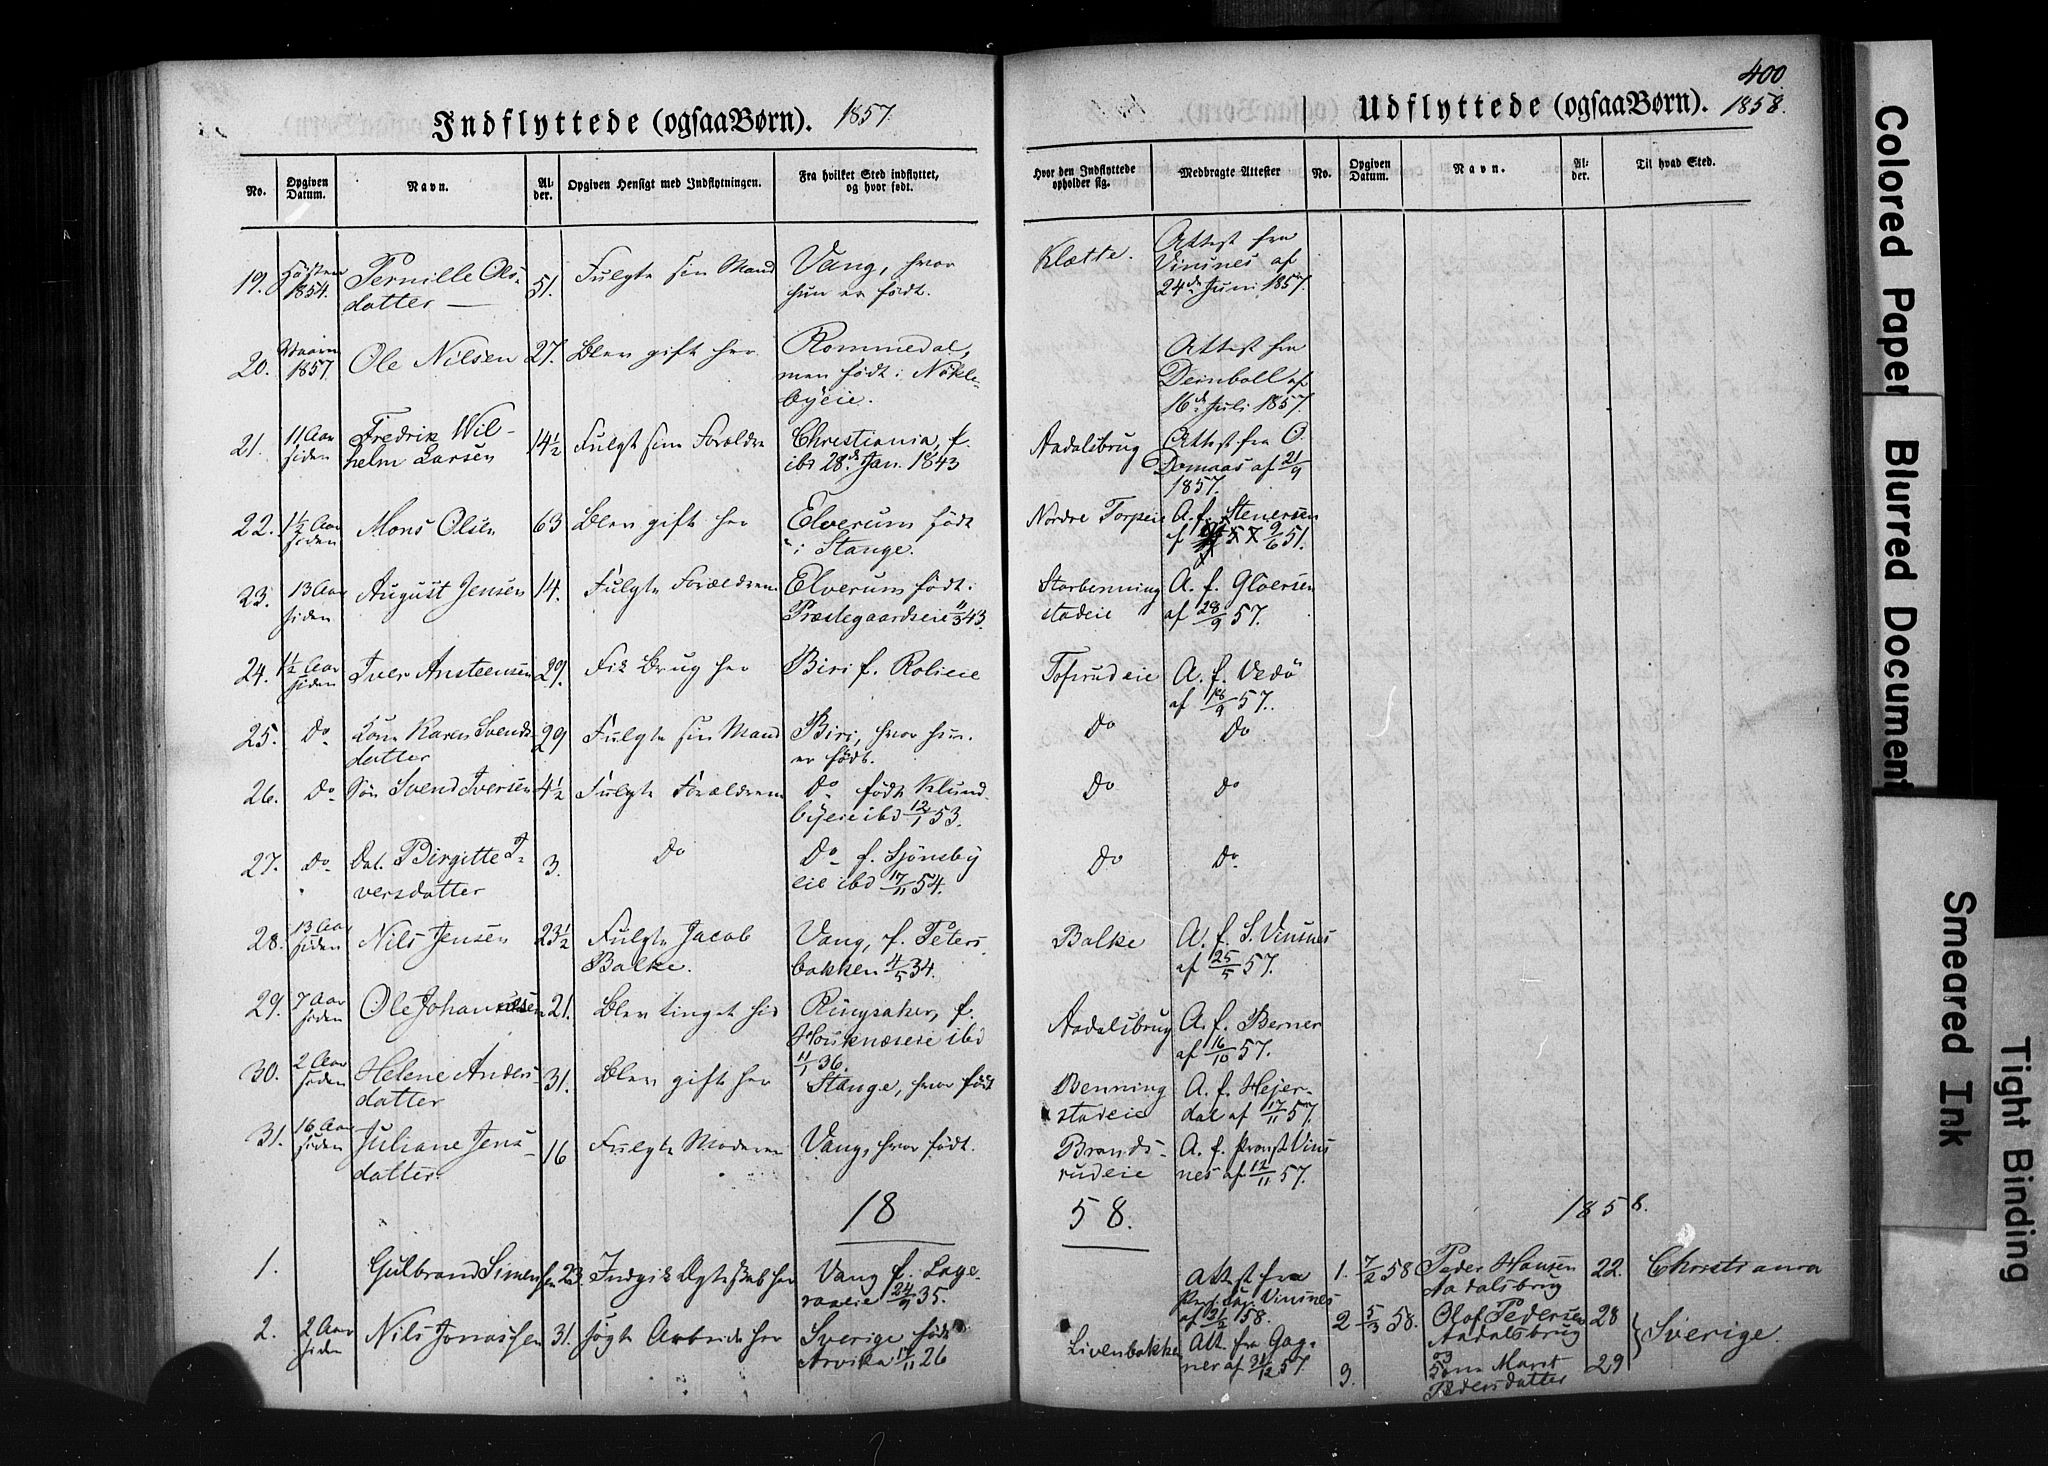 400
Indflyttede (ogsaa Børn). 1857.
Udflyttede (ogsaa Børn). 1858.
No. Opgiven Datum. Navn. Alder. Opgiven Hensigt med Indflytningen. Fra hvilket Sted indflyttet, og hvor født. Hvor den Indflyttede opholder sig. Medbragte Attester No. Opgiven Datum. Navn. Alder. Til hvad Sted.
19. Høsten 1854. Pernille Olsdatter 51. Fulgte sin Mand Vang, hvor hun er født. Klætte. Attest fra Vinsnes af 24de Juni 1857.
20. Vaaren 1857. Ole Nilsen 27. Blev gift her Rommedal, men født i Nøklebyeie. Attest fra Deinboll af 16de Juli 1857.
21. 11 Aar siden Fredrik Wilhelm Larsen 14½ Fulgt sine Foreldre Christiania, f. ibd 28de Jan. 1843 Aadalsbrug Attest fra O. Domaas af 21/9 1857.
22. 1½ Aar siden Mons Olsen 63 Blev gift her Elverum født i Stange. Nordre Torpeie A. f. Stenersen af 9/6 51.
23. 13 Aar siden August Jensen 14. Fulgte Forældrene Elverum født: Præstegaardseie 11/3 43. Storbenningstadeie A. f. Gloersen af 28/9 57.
24. 1½ Aar siden Iver Ansteensen 29. Fik Brug her Biri f. Rolieie Tofsrudeie A. f. Vedö af 18/9 57.
25. Do Kone Karen Svendsdatter 29 Fulgte sin Mand Biri, hvor hun er født. Do Do
26. Do Søn Svend Iversen 4½ Fulgte Forældrene Do født Klundbyeie ibd 12/1 53. Do Do
27. Do Dat. Birgitte Iversdatter 3. Do Do f. Sjönsbyeie ibd 17/11 54. Do Do
28. 13 Aar siden Nils Jensen 23½ Fulgte Jacob Balke. Vang, f. Petersbakken 4/5 34. Balke A. f. S. Vinsnes af 25/5 57.
29. 7 Aar siden Ole Johannesen 21. Blev tinget hid Ringsaker, f. Houknæseie ibd 11/1 36. Aadalsbrug A. f. Berner af 16/10 57.
30. 2 Aar siden Helene Andersdatter 31. Blev gift her Stange, hvor født Benningstadeie A. f. Hejerdal af 17/11 57.
31. 16 Aar siden Juliane Jensdatter 16 Fulgte Moderen Vang, hvor født. Brandsrudeie A. f. Provst Vinsnes af 12/11 57.
18 58. 1858.
1. Gulbrand Simensen 23. Indgik Ægteskab her Vang f. 24/9 35. Attest fra Vinsnes af 58.
1. 7/2 58 Peder Hansen Aadalsbrug 22. Christiania
2. 2 Aar siden Nils Jonassen 31. søgte Arbeide her Sverige født Arvika 17/11 26 Livenbakke Att. fra Gagner af 31/12 57.
2 5/3 58. Olof Pedersen Aadalsbrug 28 Sverige.
3. og Marit Pedersdatter 29
Colored Paper
Blurred Document
Smeared Ink
Tight Binding